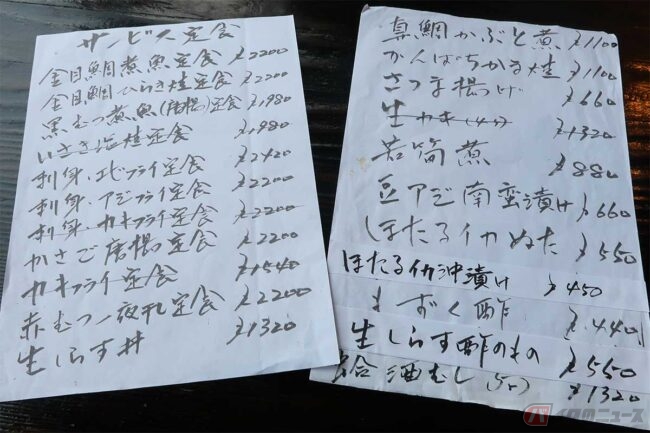 サービス定食
金目鯛煮魚定食 ¥2200
金目鯛ひらき焼定食 ¥2200
黒むつ煮魚(唐揚)定食 ¥1980
いさき塩焼定食 ¥1980
刺身、エビフライ定食 ¥2420
刺身、アジフライ定食 ¥2200
刺身、カキフライ定食 ¥2200
かさご唐揚定食 ¥2200
カキフライ定食 ¥1540
赤むつ一夜干定食 ¥2200
生しらす丼 ¥1320
真鯛かぶと煮 ¥1100
かんぱちかま焼 ¥1100
さつま揚げ ¥660
生カキ(4ケ) ¥1320
若筍煮 ¥880
豆アジ南蛮漬け ¥660
ほたるイカぬた ¥550
ほたるイカ沖漬け ¥450
もずく酢 ¥440
生しらす酢のもの ¥550
蛤酒むし(5ケ) ¥1320
イロめニュース